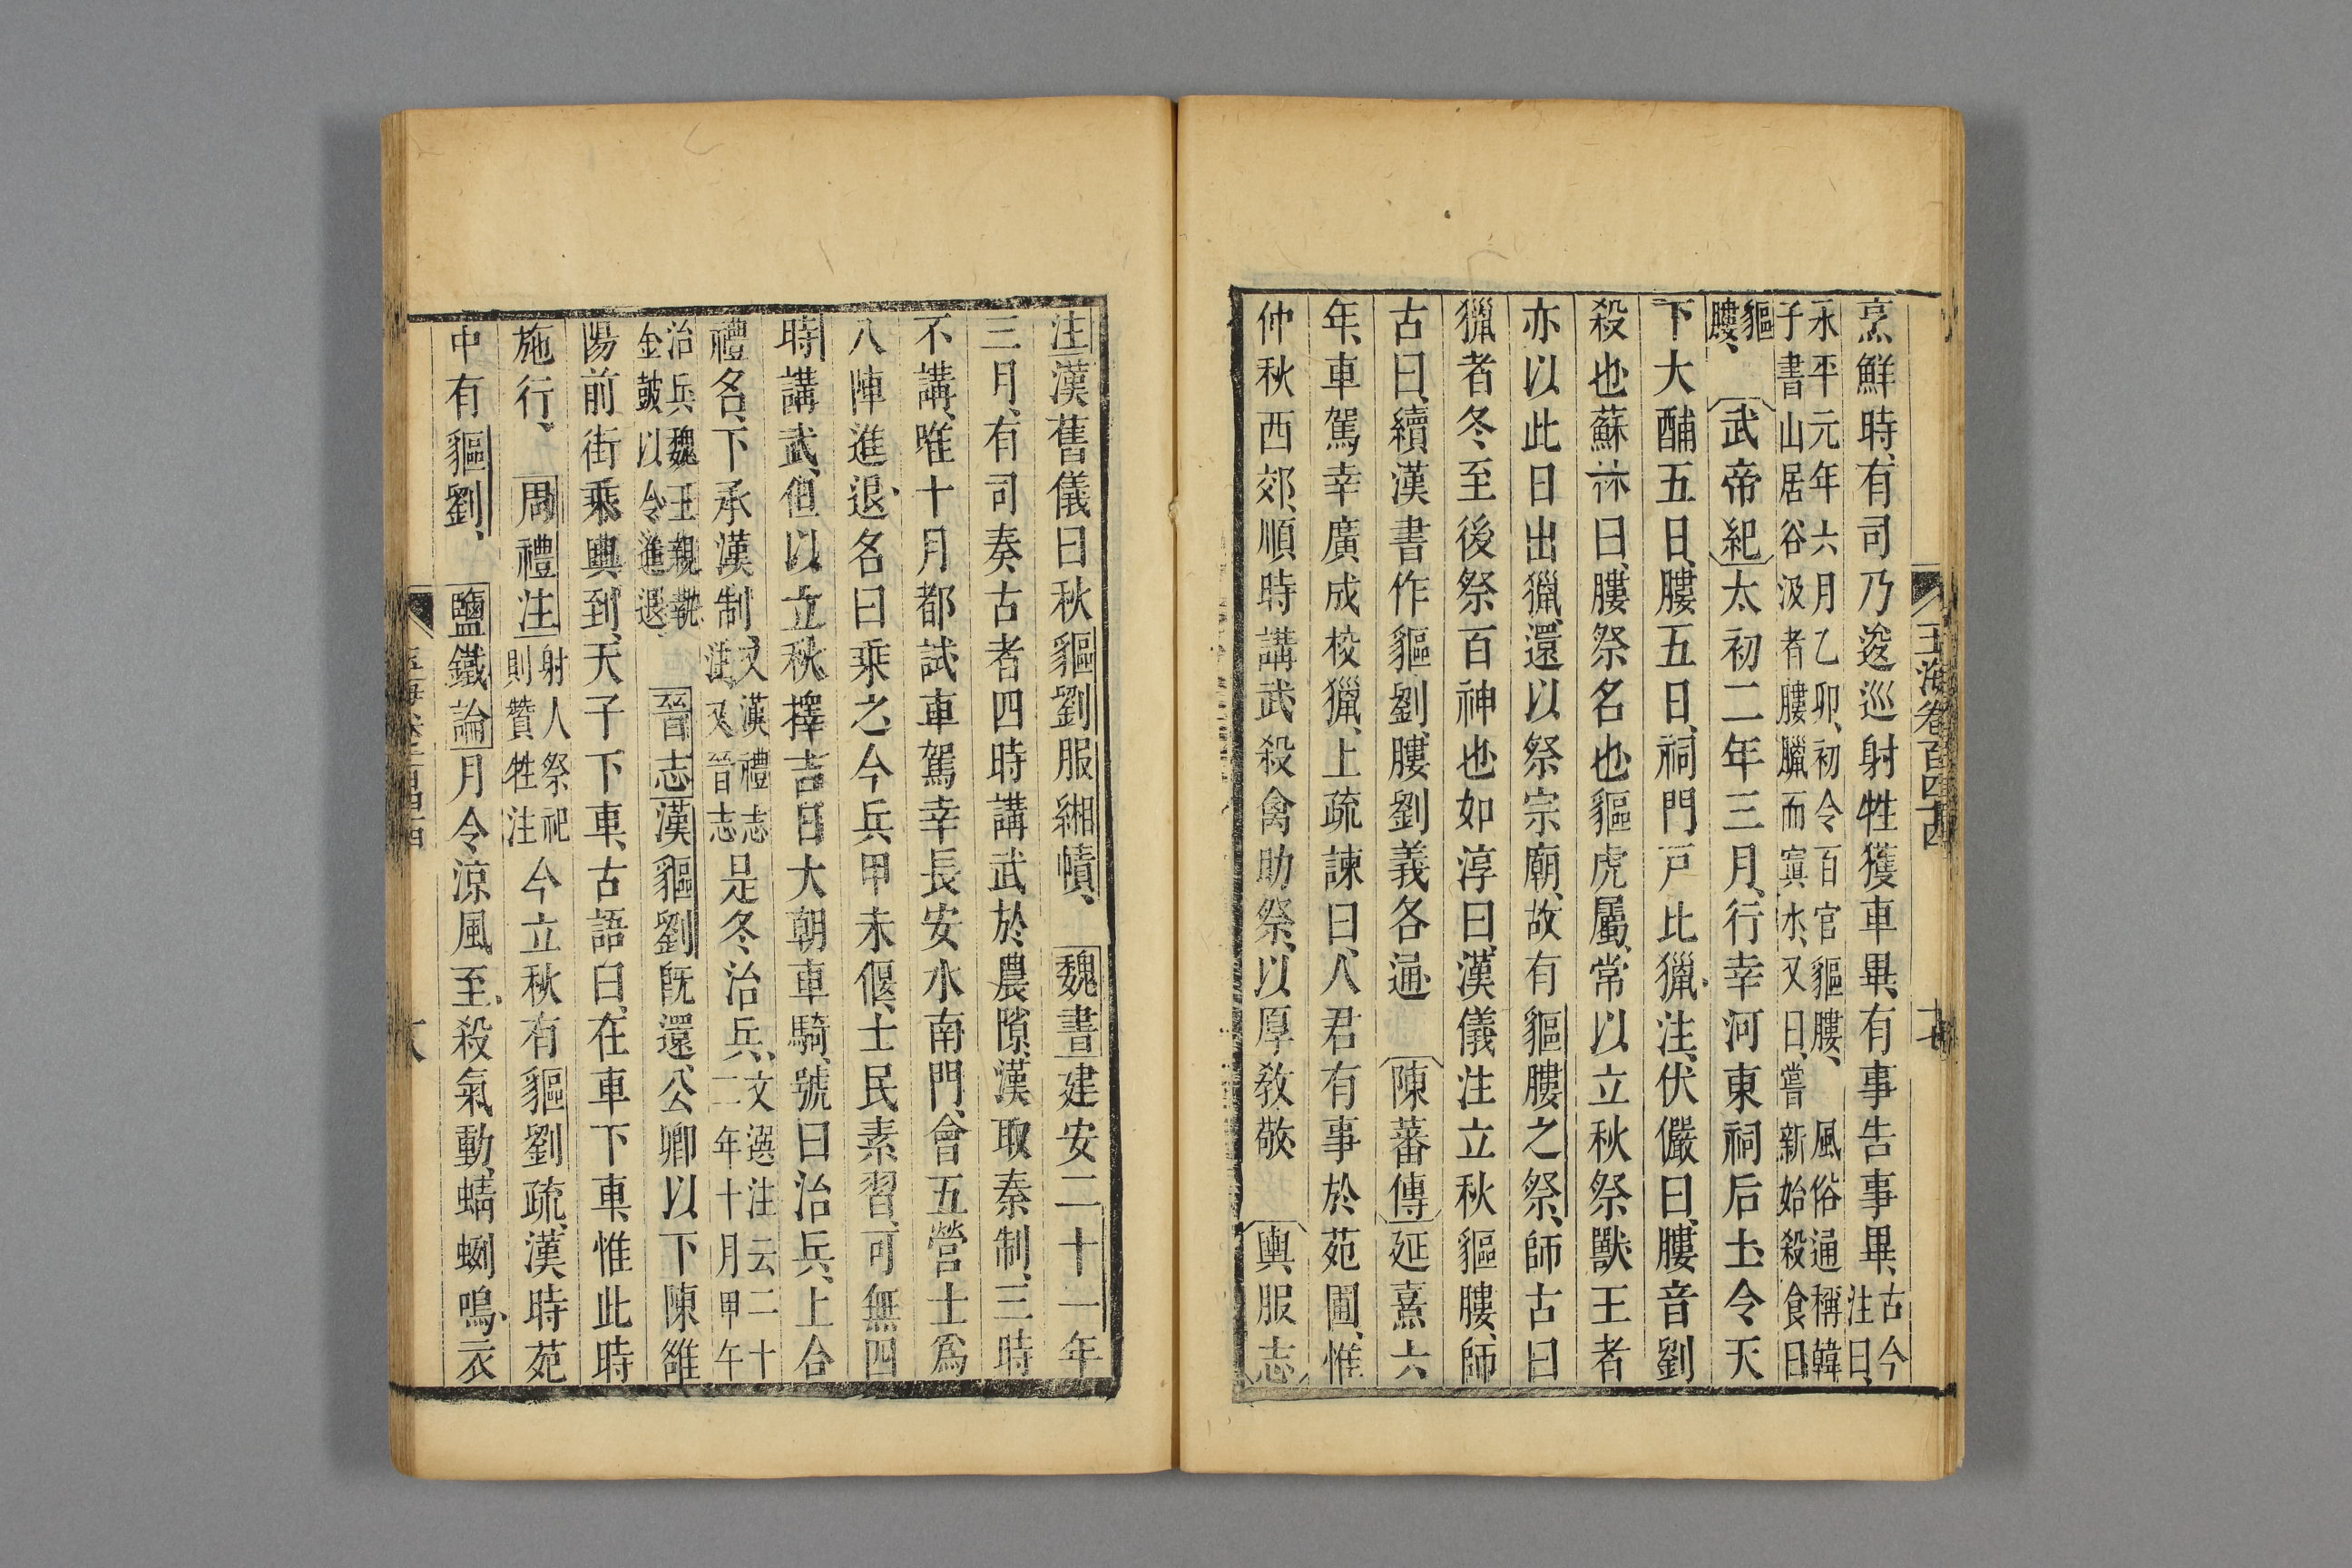 玉海卷百四十四
十七
烹鮮時、有司乃逡巡射牲獲車畢、有事告事畢、古今注曰、
永平元年六月乙卯、初令百官貙膢、風俗通稱韓
子書山居谷汲者膢臘而寘水、又曰、嘗新始殺食曰
貙膢、武帝紀太初二年三月、行幸河東祠后土、令天
下大酺五日、膢五日、祠門戶比獵、注、伏儼曰、膢音劉
殺也蘇林曰、膢祭名也貙虎屬、常以立秋祭獸王者
亦以此日出獵、還以祭宗廟、故有貙膢之祭、師古曰
獵者冬至後祭百神也如淳曰、漢儀注立秋貙膢、師
古曰、續漢書作貙劉、膢劉義各通 陳蕃傳延熹六
年、車駕幸廣成校獵、上疏諫曰、人君有事於苑囿、惟
仲秋西郊、順時講武殺禽助祭、以厚敎敬 輿服志
注漢舊儀曰秋貙劉服緗幘、 魏書建安二十一年
三月、有司奏、古者四時講武於農隙、漢取秦制、三時
不講、唯十月都試車駕幸長安水南門、會五營士爲
八陣進退、名曰乘之、今兵甲未偃、士民素習、可無四
時講武、但以立秋擇吉日大朝車騎、號曰治兵、上合
禮名、下承漢制、又漢禮志注、又晉志是冬治兵、文選注云二十二年十月甲午
治兵魏王親執金鼓以令進退 晉志漢貙劉旣還、公卿以下陳雒
陽前街乘輿到、天子下車、古語曰、在車下車、惟此時
施行、 周禮注射人祭祀則贊牲注今立秋有貙劉疏、漢時苑
中有貙劉、 鹽鐵論月令涼風至、殺氣動、蜻蛚鳴、衣